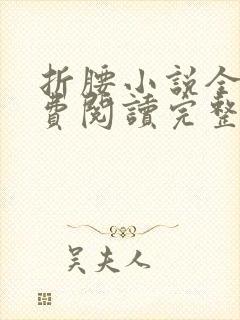 折腰小説全
費閱讀完整
吴夫人